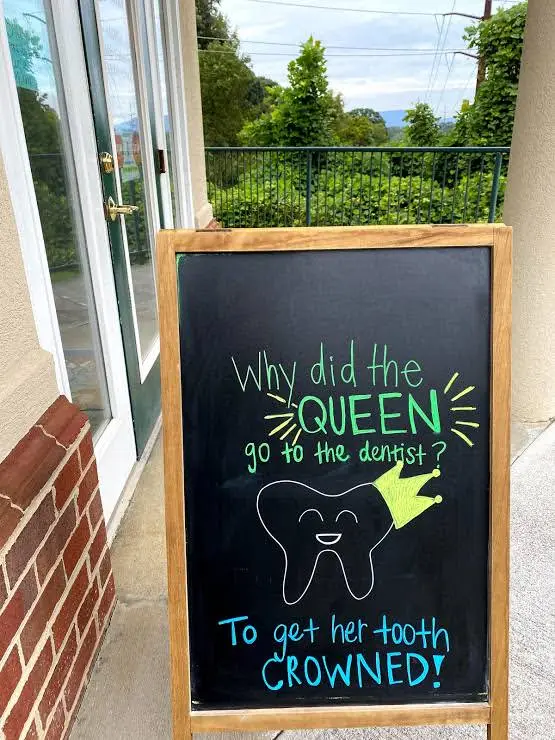 Why did the
QUEEN
go to the dentist?
To get her tooth
CROWNED!